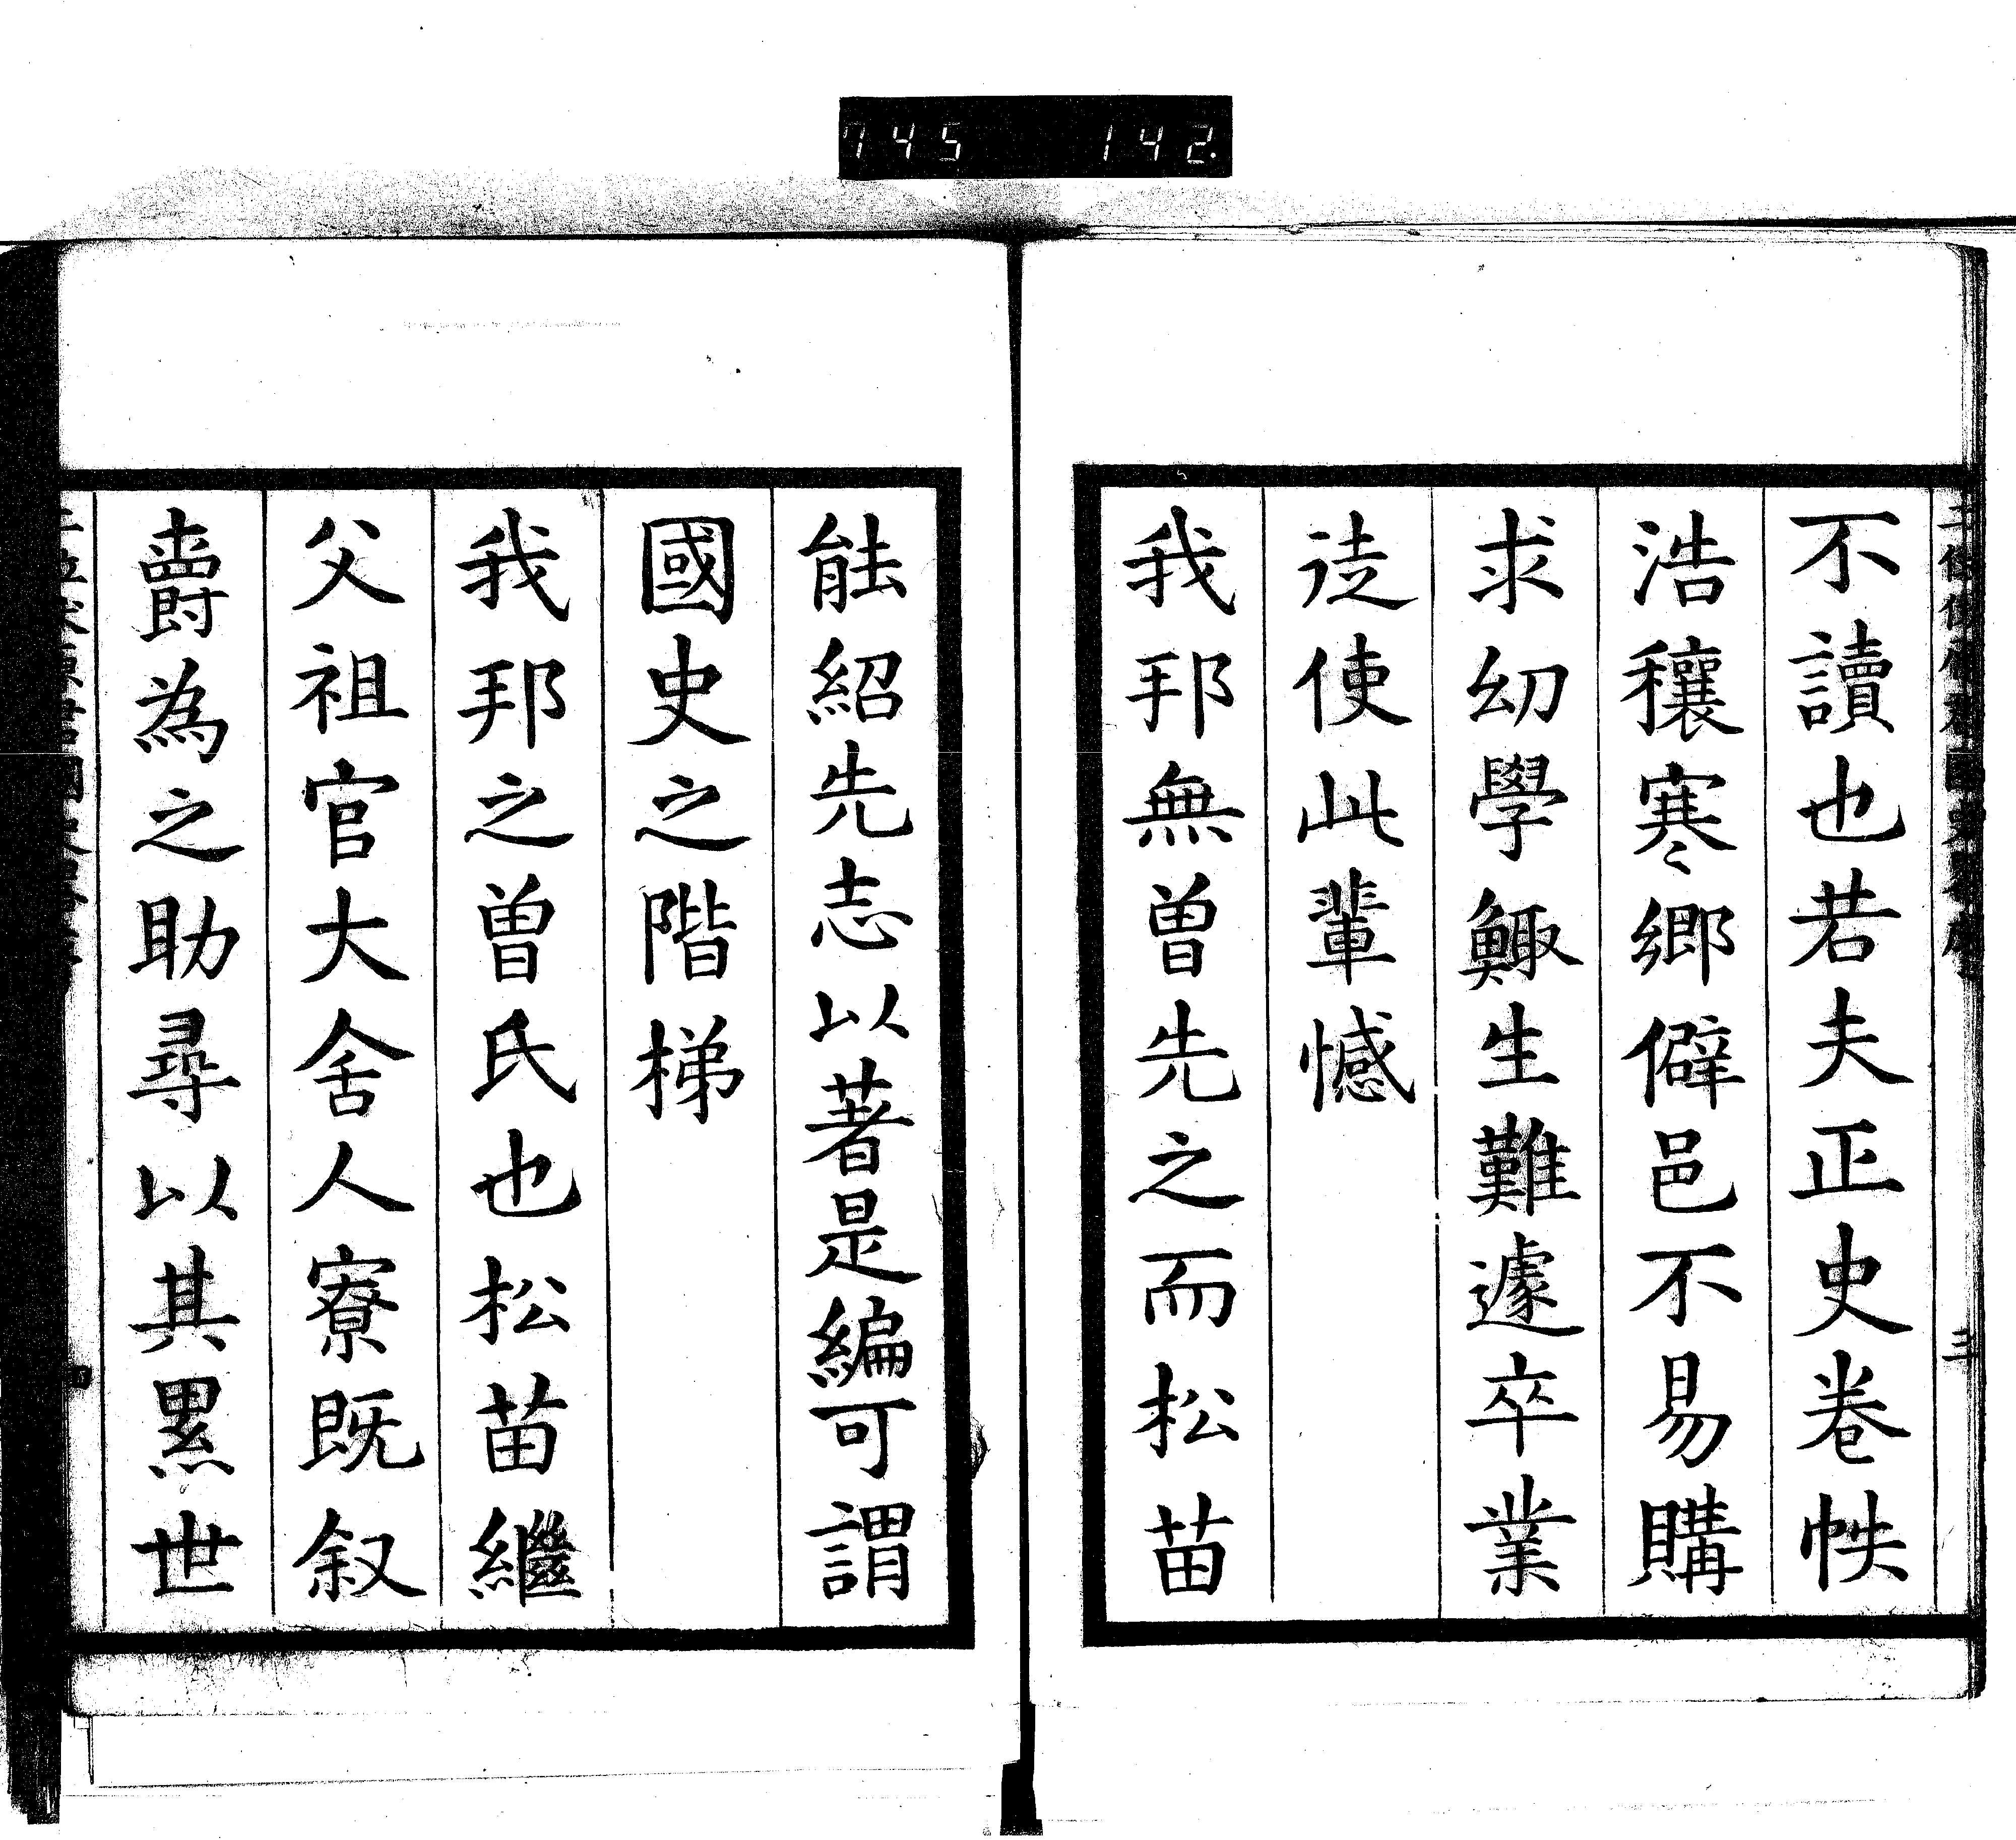 745 142.
不讀也若夫正史卷帙
浩穰寒〻鄉僻邑不易購
求幼學鯫生難遽卒業
徒使此輩憾
我邦無曾先之而松苗
三
能紹先志以著是編可謂
國史之階梯
我邦之曾氏也松苗繼
父祖官大舍人寮既叙
爵為之助尋以其累世